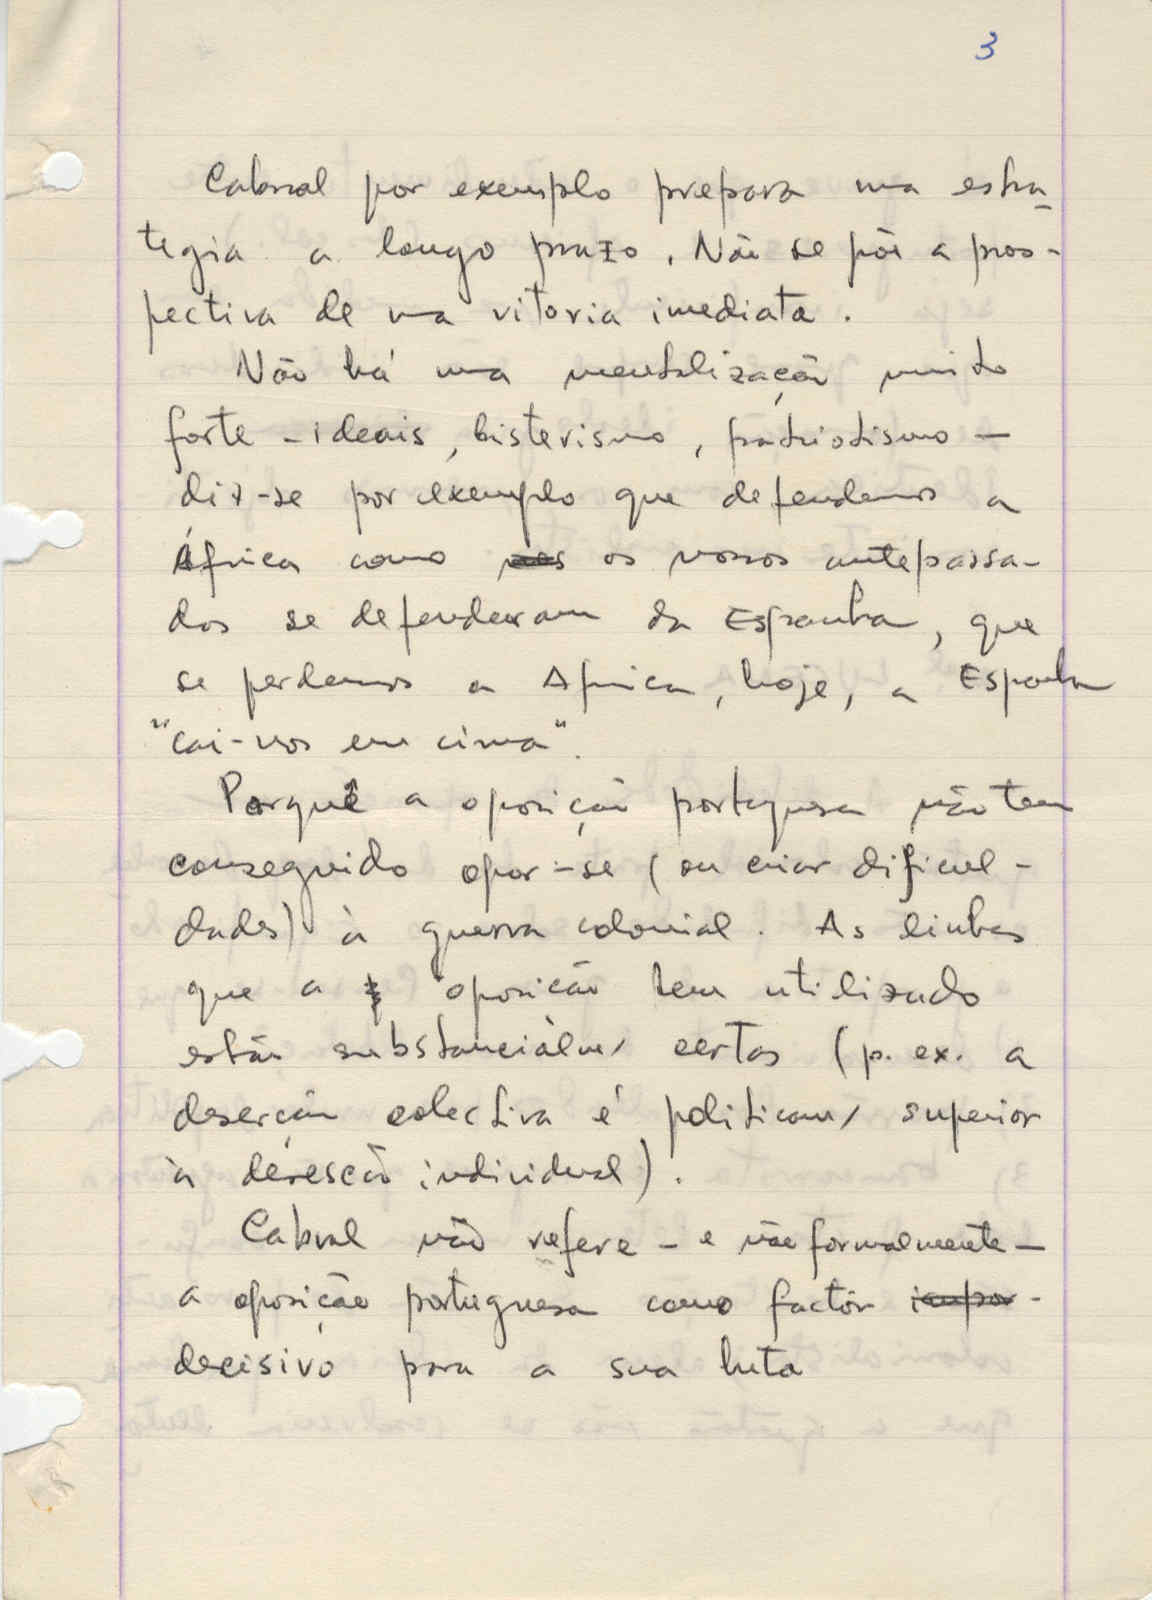 3
Cabral por exemplo prepara uma estra
tegia a longo prazo. Não se põe a pros-
pectiva de uma vitoria imediata.
Não há uma mentalização muito
forte - ideais, histerismo, patriotismo -
diz-se por exemplo que defendemos a
África como nos os nossos antepassa-
dos se defenderam da Espanha, que
se perdemos a Africa, hoje, a Espanha
"cai-nos em cima".
Porquê a oposição portuguesa não tem
conseguido opor-se (ou criar dificul-
dades) à guerra colonial. As linhas
que a oposição tem utilizado
estão substancialm/ certas (p. ex. a
deserção colectiva é politicam/ superior
à deresção individual).
Cabral não refere - e não formalmente -
a oposição portuguesa como factor impor-
decisivo para a sua luta